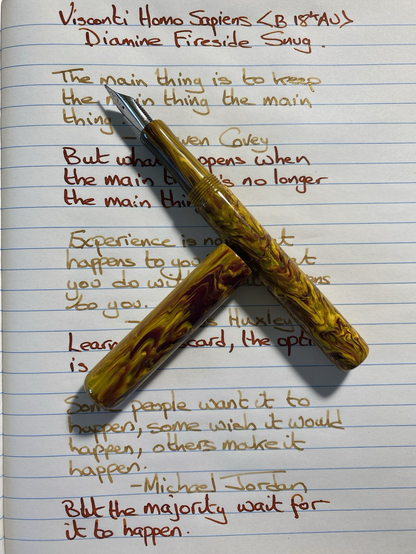 Visconti Homo Sapiens <B 18ᵏᵗAU>
Diamine Fireside Snug.
The main thing is to keep
the main thing the main
thing
Covey
But what happens when
the main is no longer
the main
Experience is
happens to you
you do
to you.
Huxley
Learn, the
is
Some people want it to
happen, some wish it would
happen, others make it
happen.
-Michael Jordan
But the majority wait for
it to happen.